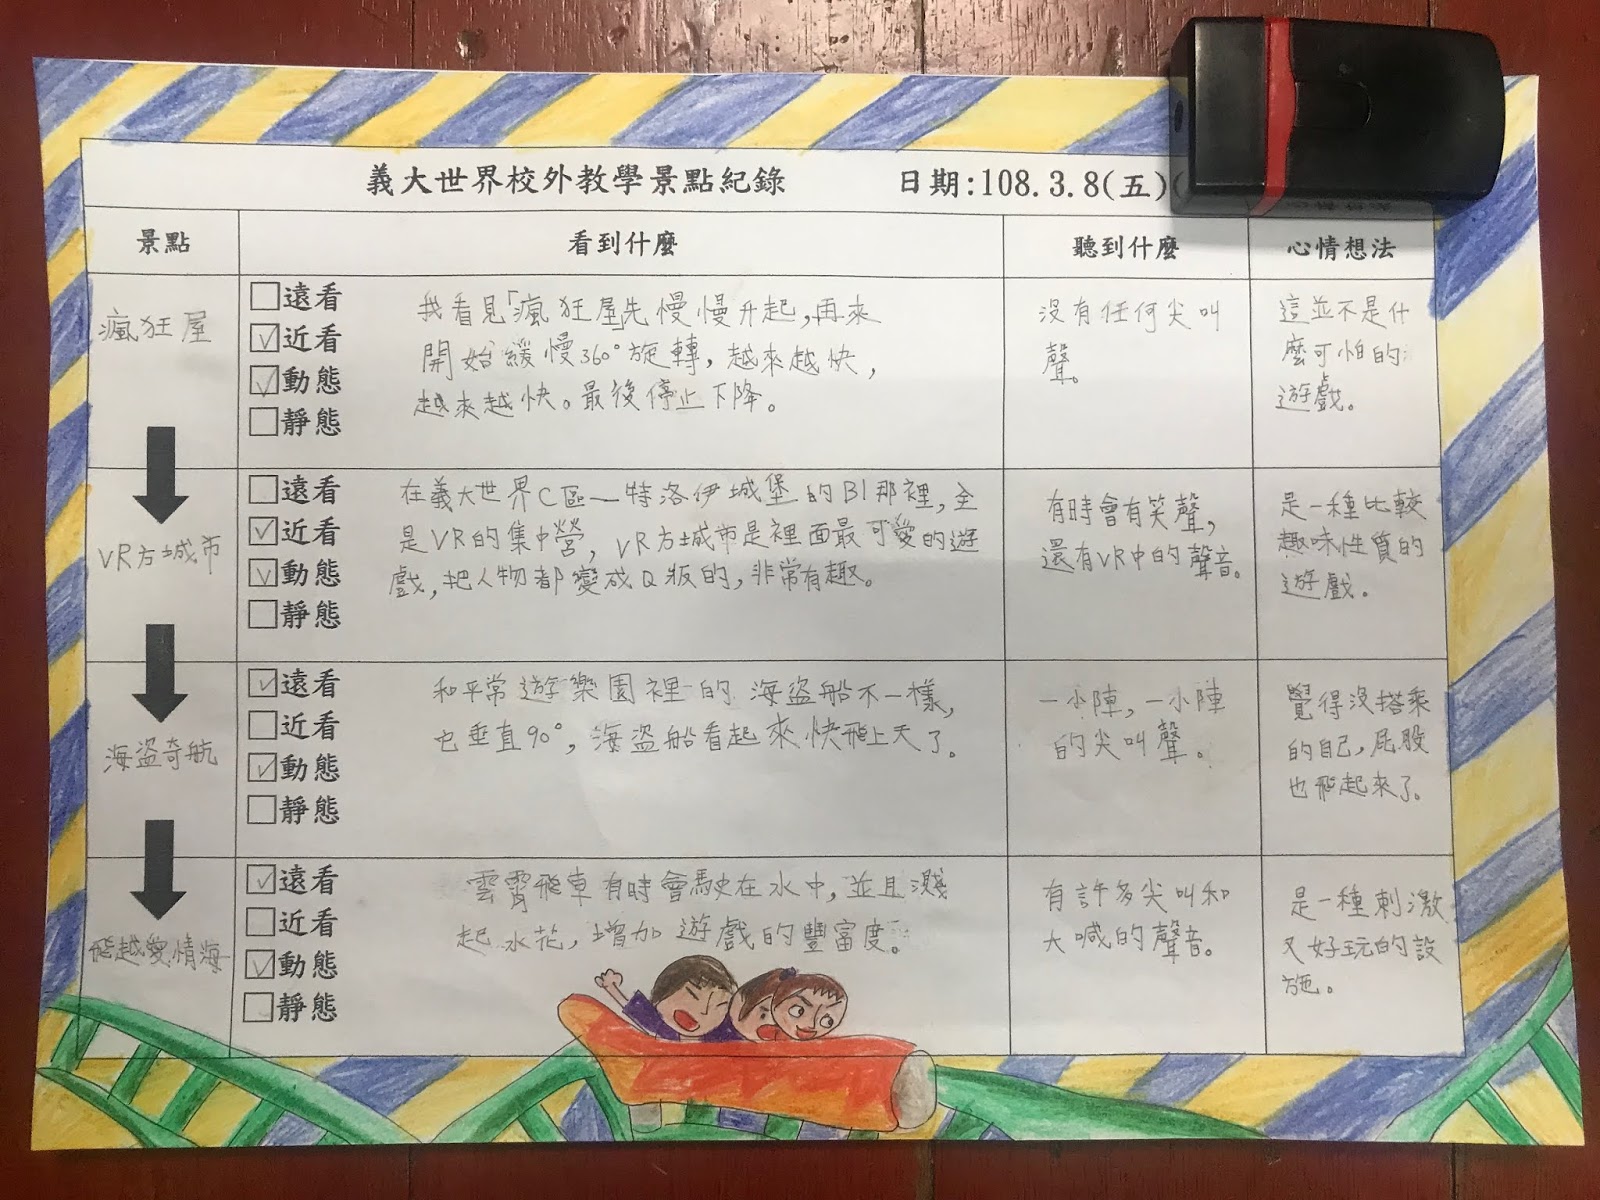 義大世界校外教學景點紀錄 日期:108.3.8(五)(
景點 看到什麼 聽到什麼 心情想法
瘋狂屋
□遠看
☑近看
☑動態
□靜態
我看見「瘋狂屋」先慢慢升起,再來
開始緩慢360°旋轉,越來越快,
越來越快。最後停止下降。
沒有任何尖叫
聲。
這並不是什
麼可怕的
遊戲。
VR方城市
□遠看
☑近看
☑動態
□靜態
在義大世界C區—特洛伊城堡的B1那裡,全
是VR的集中營,VR方城市是裡面最可愛的遊
戲,把人物都變成Q版的,非常有趣。
有時會有笑聲,
還有VR中的聲音。
是一種比較
趣味性質的
遊戲。
海盜奇航
☑遠看
□近看
☑動態
□靜態
和平常遊樂園裡的海盜船不一樣,
也垂直90°,海盜船看起來快飛上天了。
一小陣,一小陣
的尖叫聲。
覺得沒搭乘
的自己,屁股
也飛起來了。
飛越愛情海
☑遠看
□近看
☑動態
□靜態
雲霄飛車有時會駛在水中,並且濺
起水花,增加遊戲的豐富度。
有許多尖叫和
大喊的聲音。
是一種刺激
又好玩的設
施。